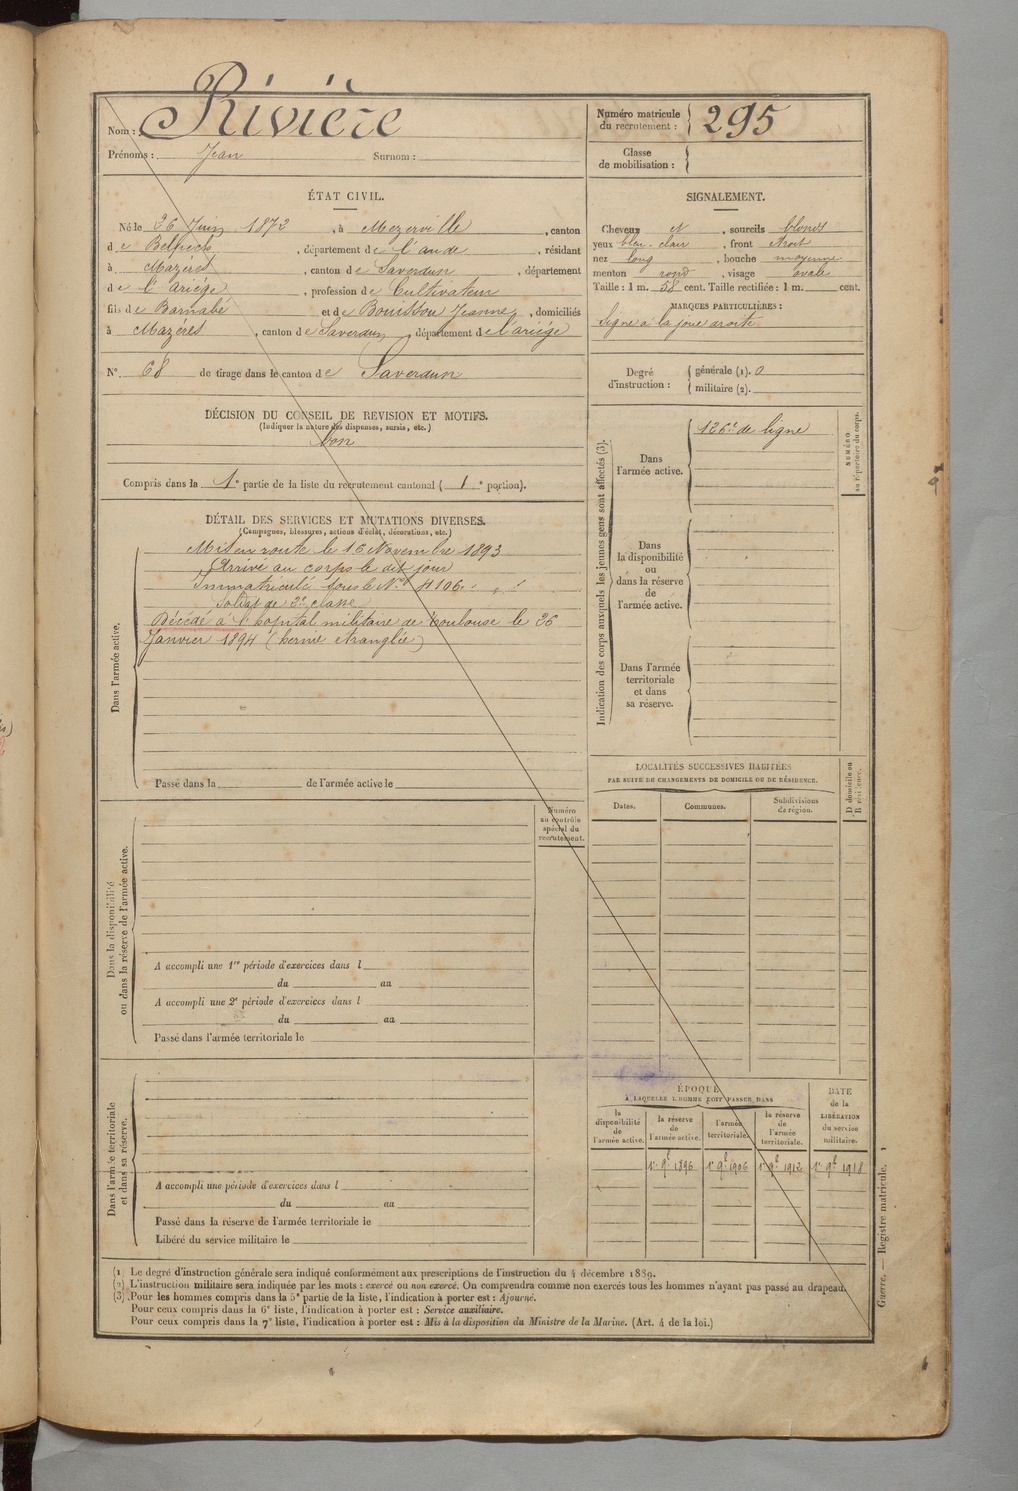 Nom : Rivière
Prénoms : Jean Surnom :
Numéro matricule du recrutement : 295
Classe de mobilisation :
ÉTAT CIVIL.
Né le 26 Juin 1872, à Mezerville, canton
de Belpech, département de l'aude, résidant
à Mazères, canton de Saverdun, département
de l'Ariége, profession de Cultivateur
fils de Barnabé et de Bouissou Jeanne, domiciliés
à Mazères, canton de Saverdun, département de l'ariége
N° 68 de tirage dans le canton de Saverdun
DÉCISION DU CONSEIL DE REVISION ET MOTIFS.
(Indiquer la nature des dispenses, sursis, etc.)
Bon
Compris dans la 1e partie de la liste du recrutement cantonal ( 1e portion).
SIGNALEMENT.
Cheveux et, sourcils blonds
yeux bleu-clair, front étroit
nez long, bouche moyenne
menton rond, visage ovale
Taille : 1 m. 58 cent. Taille rectifiée : 1 m. cent.
MARQUES PARTICULIÈRES :
Signe à la joue droite
Degré d'instruction : générale (1). 0
militaire (2).
DÉTAIL DES SERVICES ET MUTATIONS DIVERSES.
(Campagnes, blessures, actions d'éclat, décorations, etc.)
Dans l'armée active.
Mis en route le 16 Novembre 1893
Arrivé au corps le dit jour
Immatriculé sous le N° 4106
Soldat de 2e classe
Décédé à l'hopital militaire de Toulouse le 26
Janvier 1894 (hernie étranglée)
Passé dans la de l'armée active le
Indication des corps auxquels les jeunes gens sont affectés (3).
Dans l'armée active.
126e de ligne
NUMÉRO au répertoire du corps.
Dans la disponibilité ou dans la réserve de l'armée active.
Dans l'armée territoriale et dans sa réserve.
LOCALITÉS SUCCESSIVES HABITÉES
PAR SUITE DE CHANGEMENTS DE DOMICILE OU DE RÉSIDENCE.
D domicile ou R résidence.
Dates. Communes. Subdivisions de région.
Numéro au contrôle spécial du recrutement.
Dans la disponibilité ou dans la réserve de l'armée active.
A accompli une 1re période d'exercices dans l
du au
A accompli une 2e période d'exercices dans l
du au
Passé dans l'armée territoriale le
Dans l'armée territoriale et dans sa réserve.
A accompli une période d'exercices dans l
du au
Passé dans la réserve de l'armée territoriale le
Libéré du service militaire le
ÉPOQUE
A LAQUELLE L'HOMME DOIT PASSER DANS
la disponibilité de l'armée active.
la réserve de l'armée active.
l'armée territoriale.
la réserve de l'armée territoriale.
DATE de la LIBÉRATION du service militaire.
1er 9bre 1896 1er 9bre 1906 1er 9bre 1912 1er 9bre 1918
(1) Le degré d'instruction générale sera indiqué conformément aux prescriptions de l'instruction du 4 décembre 1889.
(2) L'instruction militaire sera indiquée par les mots : exercé ou non exercé. On comprendra comme non exercés tous les hommes n'ayant pas passé au drapeau.
(3) Pour les hommes compris dans la 5e partie de la liste, l'indication à porter est : Ajourné.
Pour ceux compris dans la 6e liste, l'indication à porter est : Service auxiliaire.
Pour ceux compris dans la 7e liste, l'indication à porter est : Mis à la disposition du Ministre de la Marine. (Art. 4 de la loi.)
Guerre. — Registre matricule. 1